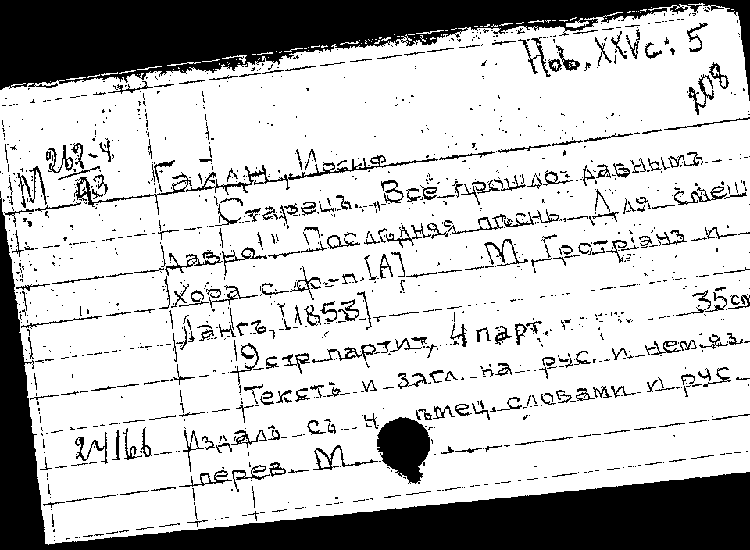 Нов. XXVс: 5
208
М 262-4/93
Гайдн, Иосиф
Старецъ. „Все прошло: давнымъ
давно!". Послѣдняя пѣснь. Для смеш
хора с ф.-п. [А] М., Гротріанъ и
Лангъ, [1858].
9 стр. партит, 4 парт. 35 cm
Текстъ и загл. на рус. и нем. яз.
24166 Издалъ съ н ѣмец. словами и рус.
перев. М.